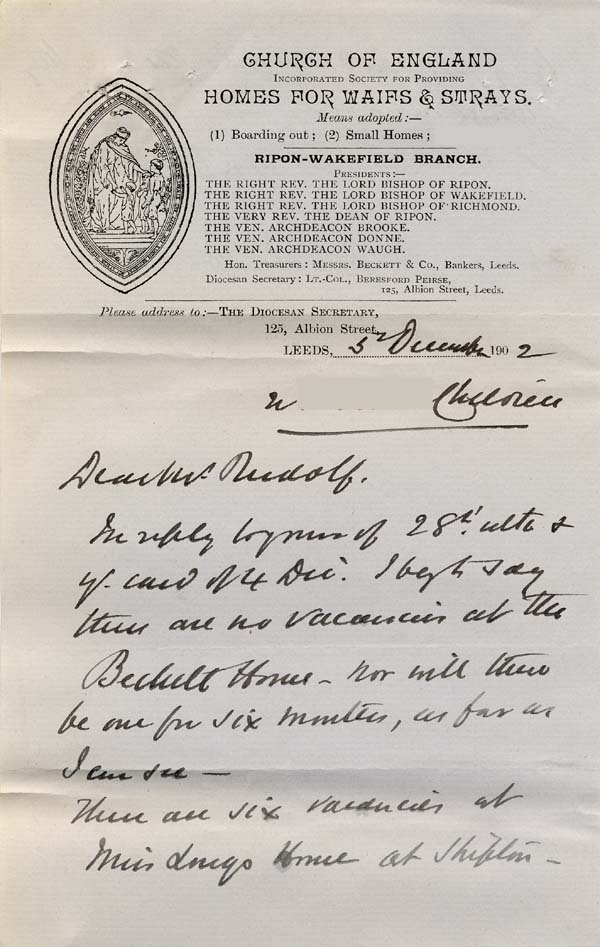 CHURCH OF ENGLAND
INCORPORATED SOCIETY FOR PROVIDING
HOMES FOR WAIFS & STRAYS.
Means adopted:—
(1) Boarding out; (2) Small Homes;
RIPON-WAKEFIELD BRANCH.
PRESIDENTS:—
THE RIGHT REV. THE LORD BISHOP OF RIPON.
THE RIGHT REV. THE LORD BISHOP OF WAKEFIELD.
THE RIGHT REV. THE LORD BISHOP OF RICHMOND.
THE VERY REV. THE DEAN OF RIPON.
THE VEN. ARCHDEACON BROOKE.
THE VEN. ARCHDEACON DONNE.
THE VEN. ARCHDEACON WAUGH.
Hon. Treasurers: MESSRS. BECKETT & CO., Bankers, Leeds.
Diocesan Secretary: LT.-COL., BERESFORD PEIRSE,
125, Albion Street, Leeds.
Please address to:—THE DIOCESAN SECRETARY,
125, Albion Street,
LEEDS, 5 December 1902
Children
Dear Mr Rudolf.
In reply to yours of 28th ulto &
yr. card of 4 Dec. I beg to say
there are no vacancies at the
Beckett Home – nor will there
be one for six months, as far as
I can see –
There are six vacancies at
Miss Longs Home at Skipton –